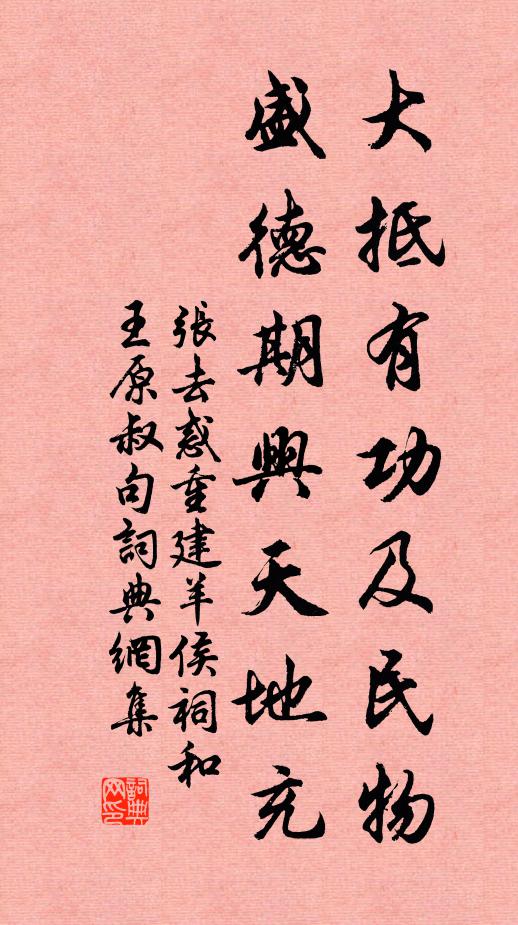 大抵有功及民物
盛德期興天地充
張去惑重建羊侯祠和
王原叔句詞典網集
詞典网印